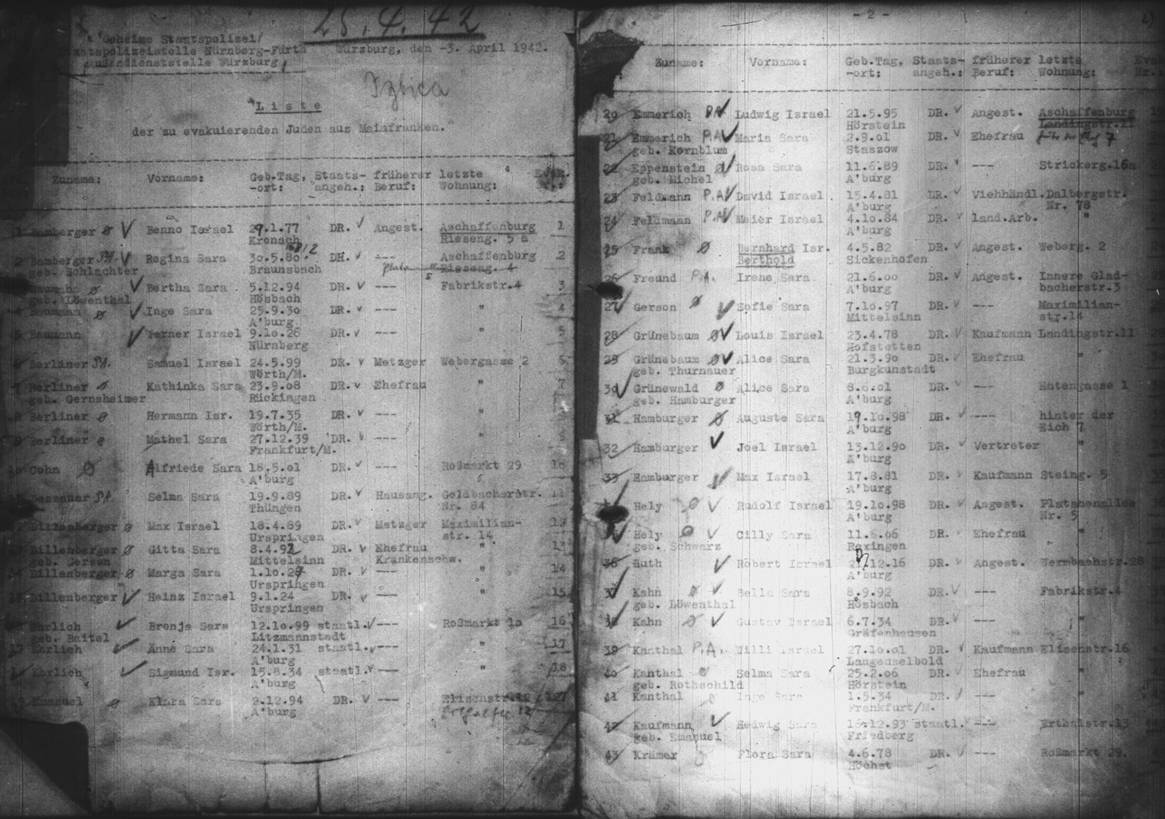 25.4.42
Geheime Staatspolizei/
Staatspolizeistelle Nürnberg-Fürth Würzburg, den -3. April 1942.
Außendienststelle Würzburg.
Izbica
Liste
der zu evakuierenden Juden aus Mainfranken.
Zuname: Vorname: Geb.Tag, Staats- früherer letzte
-ort: angeh.: Beruf: Wohnung:
1 Bamberger Benno Israel 29.1.77 DR. Angest. Aschaffenburg 1
Kronach Rieseng. 5 a
2 Bamberger Regina Sara 30.5.80 DR. --- Aschaffenburg 2
geb. Schlachter Braunsbach Rieseng. 4
Bertha Sara 5.12.94 DR. --- Fabrikstr.4 3
geb. Löwenthal Hösbach
Baumann Inge Sara 25.9.30 DR. --- " 4
A'burg
Baumann Werner Israel 9.10.26 DR. --- " 5
Nürnberg
Berliner Samuel Israel 24.5.99 DR. Metzger Webergasse 2 6
Wörth/M.
7 Berliner Kathinka Sara 23.9.08 DR. Ehefrau " 7
geb. Gernsheimer Rückingen
8 Berliner Hermann Isr. 19.7.35 DR. --- "
Wörth/M.
Berliner Mathel Sara 27.12.39 DR. --- "
Frankfurt/M.
Cohn Alfriede Sara 18.5.01 DR. --- Roßmarkt 29 10
A'burg
Selma Sara 19.9.89 DR. Hausang. Goldbacherstr. 11
Thüngen Nr. 84
Dillenberger Max Israel 18.4.89 DR. Metzger Maximilian-
Urspringen str. 14
Dillenberger Gitta Sara 8.4.92 DR. Ehefrau "
geb. Gerson Mittelsinn Krankenschw.
Dillenberger Marga Sara 1.10.27 DR. --- " 14
Urspringen
Dillenberger Heinz Israel 9.1.24 DR. --- " 15
Urspringen
Ehrlich Brenja Sara 12.10.99 staatl. --- Roßmarkt 16
geb. Beitel Litzmannstadt
17 Ehrlich Änne Sara 24.1.31 staatl. --- " 17
A'burg
Ehrlich Sigmund Isr. 15.8.34 staatl. --- " 18
A'burg
Emanuel Klara Sara 9.12.94 DR. --- Elisenstr.
A'burg
- 2 -
Zuname: Vorname: Geb.Tag, Staats- früherer letzte
-ort: angeh.: Beruf: Wohnung:
20 Emmerich P.A. Ludwig Israel 21.5.95 DR. Angest. Aschaffenburg
Hörstein
21 Emmerich P.A. Maria Sara 2.9.01 DR. Ehefrau
geb. Kornblum Staszow
22 Eppenstein Rosa Sara 11.6.89 DR. --- Strickerg.16a
geb. Michel A'burg
23 Feldmann P.A. David Israel 15.4.81 DR. Viehhändl. Dalbergstr.
A'burg Nr. 78
24 Feldmann P.A. Meier Israel 4.10.84 DR. land.Arb. "
A'burg
25 Frank Bernhard Isr. 4.5.82 DR. Angest. Weberg. 2
Berthold Sickenhofen
26 Freund P.A. Irene Sara 21.6.00 DR. Angest. Innere Glad-
A'burg bacherstr.3
27 Gerson Sofie Sara 7.10.97 DR. --- Maximilian-
Mittelsinn str.14
28 Grünebaum Louis Israel 23.4.78 DR. Kaufmann Landingstr.11
Hofstetten
29 Grünebaum Alice Sara 21.3.90 DR. Ehefrau "
geb. Thurnauer Burgkunstadt
30 Grünewald Alice Sara 8.6.01 DR. ---
geb. Hamburger A'burg
31 Hamburger Auguste Sara 19.10.98 DR. --- hinter der
A'burg Eich 7
32 Hamburger Joel Israel 13.12.90 DR. Vertreter "
A'burg
33 Hamburger Max Israel 17.8.81 DR. Kaufmann Steing. 5
A'burg
Hely Rudolf Israel 19.10.98 DR. Angest. Platanenallee
A'burg Nr. 5
Hely Cilly Sara 11.6.06 DR. Ehefrau "
geb. Schwarz Rexingen
36 Huth Robert Israel 12.16 DR. Angest. Wermbachstr.
A'burg
37 Kahn Bella Sara 8.9.92 DR. --- Fabrikstr.4
geb. Löwenthal Hösbach
38 Kahn Gustav Israel 6.7.34 DR. --- "
Gräfenhausen
39 Kanthal P.A. Willi Israel 27.10.01 DR. Kaufmann Elisenstr.16
Langenselbold
40 Kanthal Selma Sara 25.2.06 DR. Ehefrau "
geb. Rothschild Hörstein
41 Kanthal Inge Sara 1.5.34 DR. --- "
Frankfurt/M.
42 Kaufmann Hedwig Sara 15.12.93 staatl. --- Erthalstr.13
geb. Emanuel Friedberg
43 Krämer Flora Sara 4.6.78 DR. --- Roßmarkt 29.
Höchst